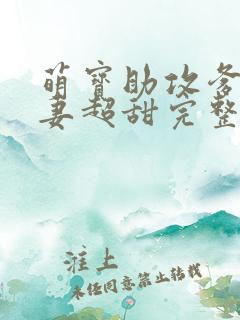 萌宝助攻爹
妻超甜完整
淮上
未经同意禁止转载